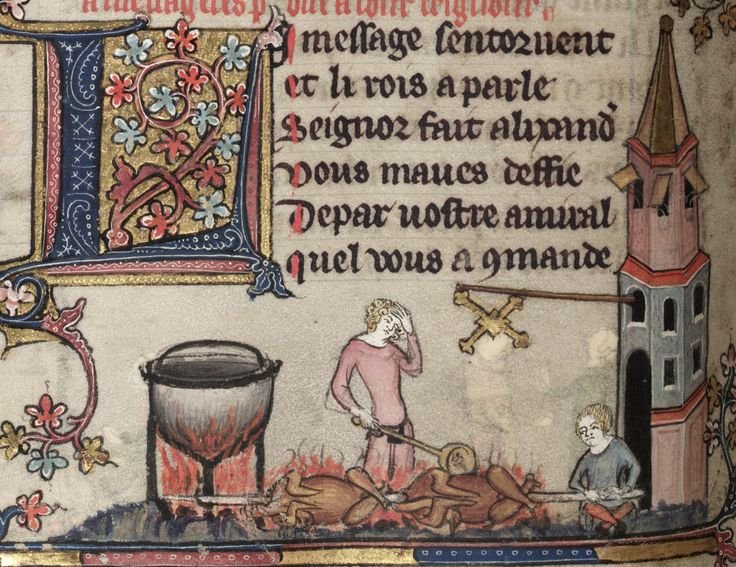 LI message sentornent
et li rois a parle
Seignor fait alixand᾽
vous maues deffie
Depar uostre amiral
quel vous a ꝯmande